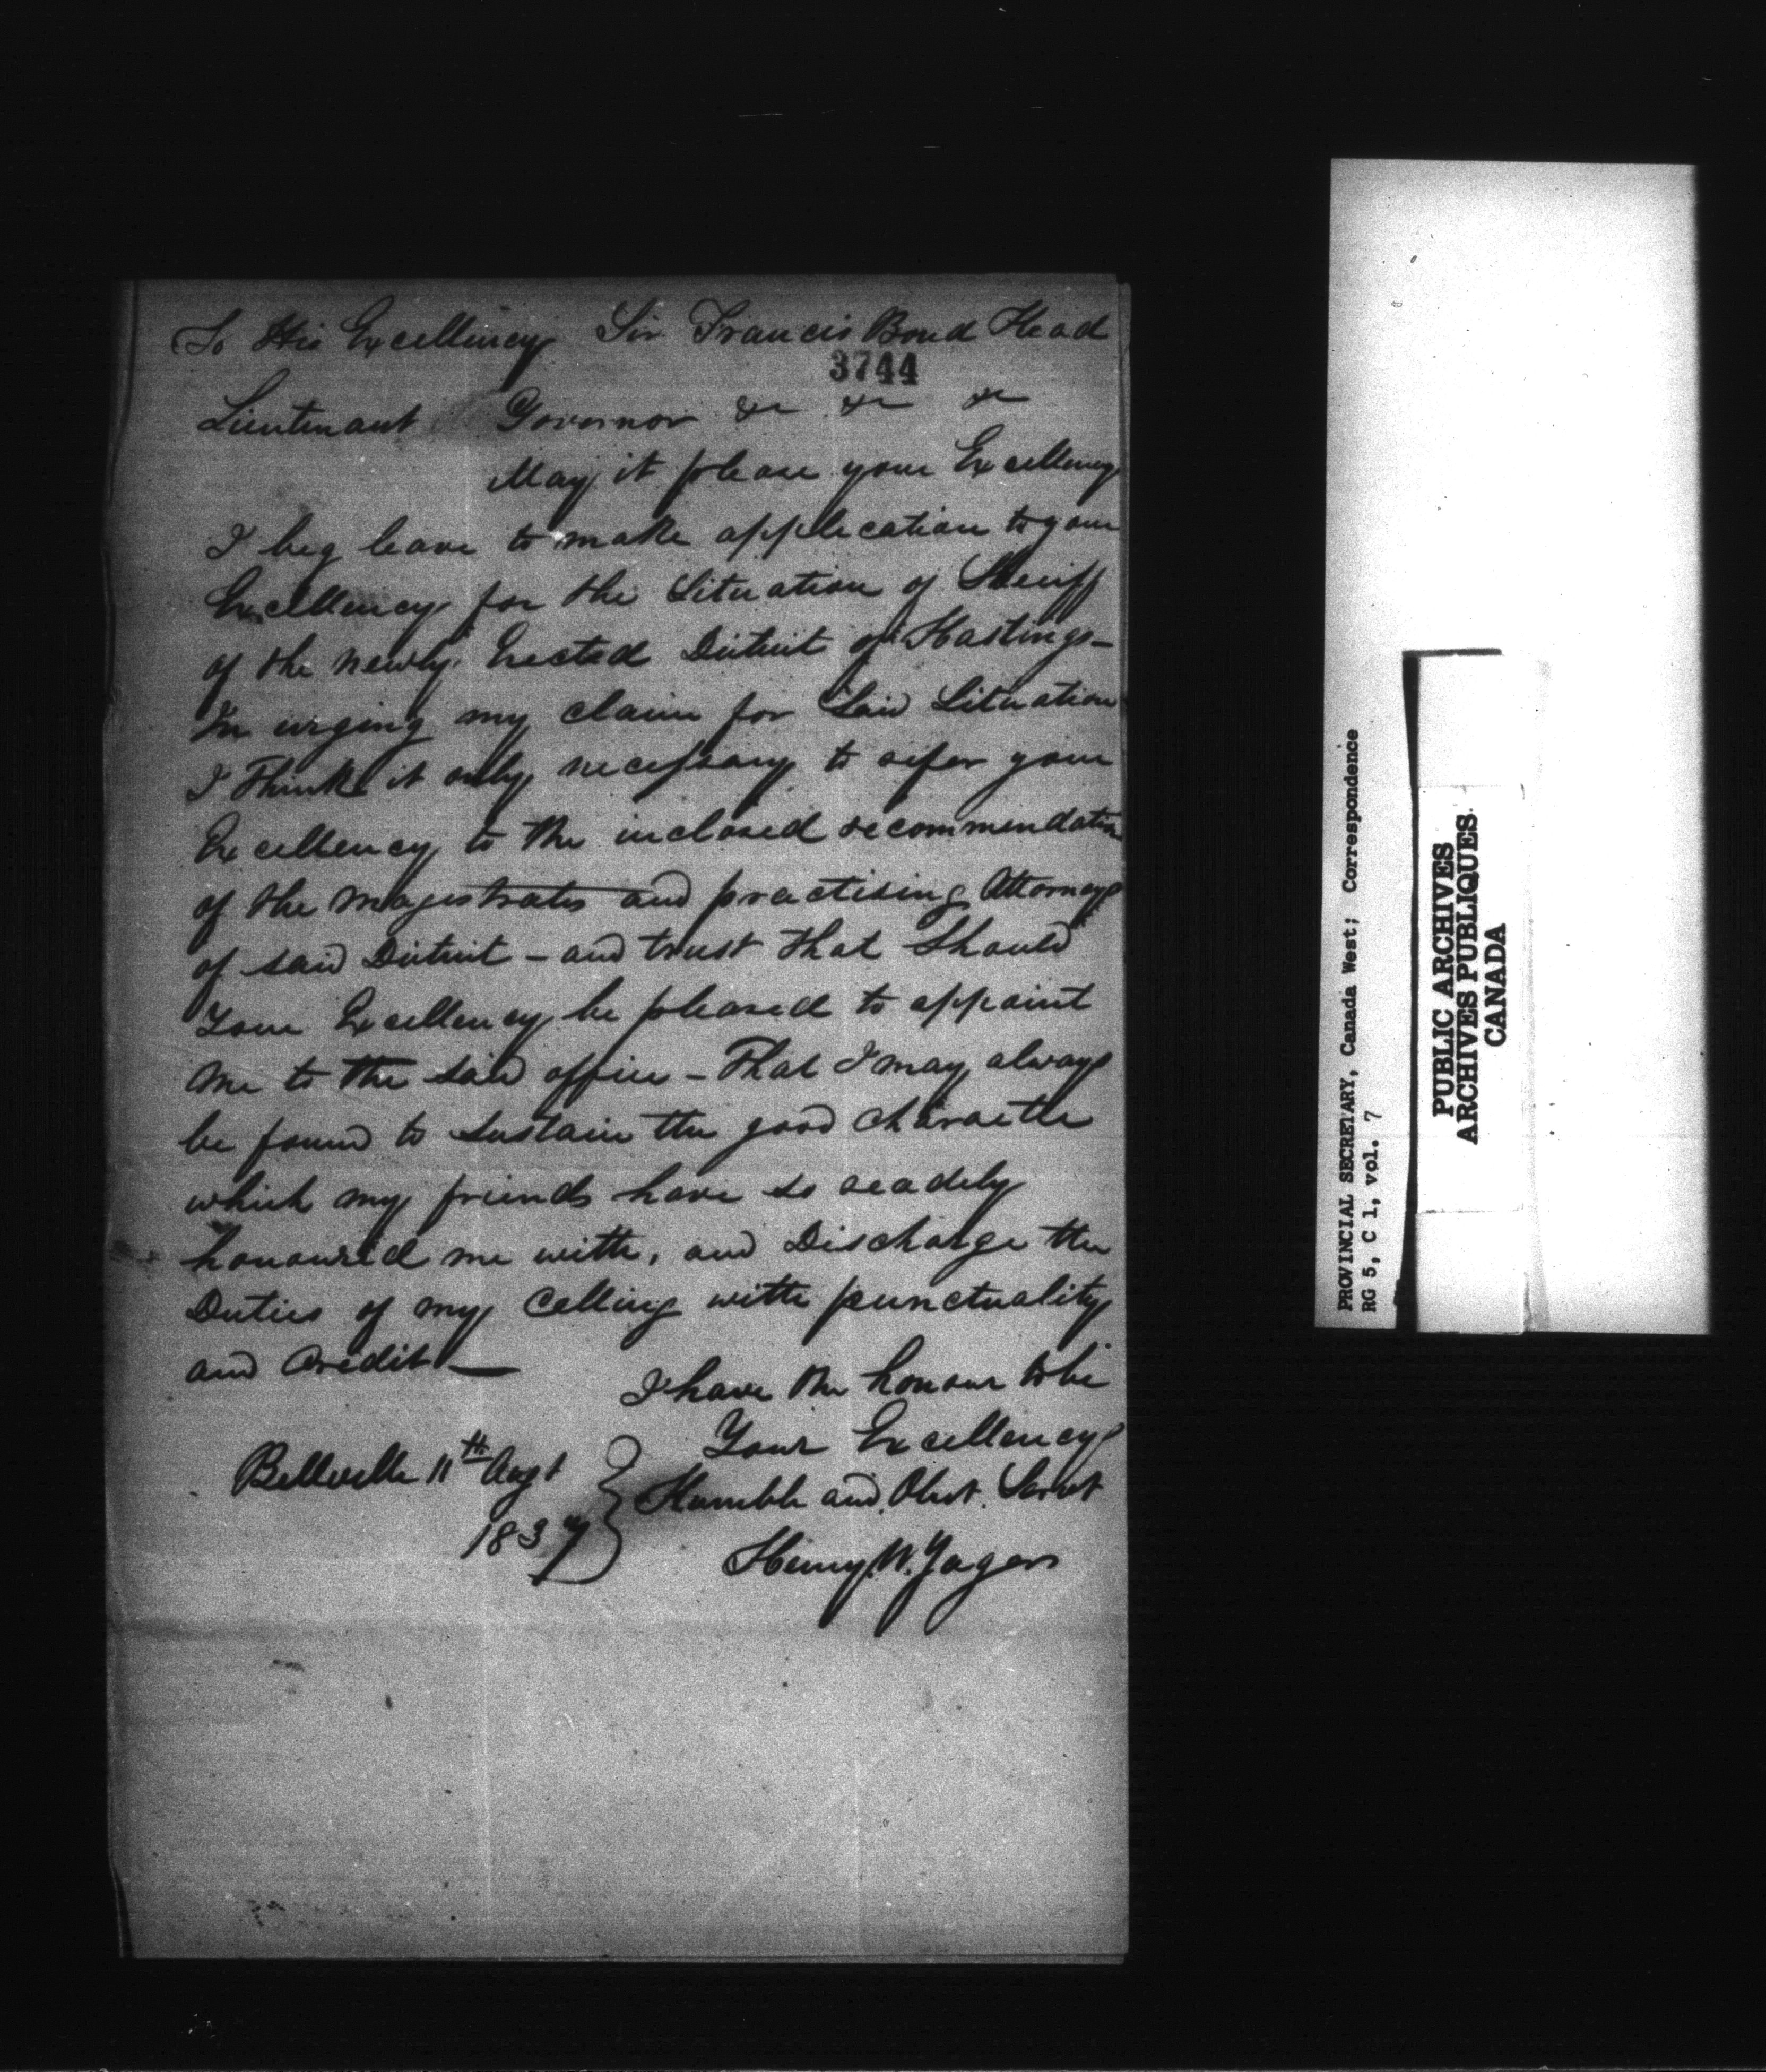 To His Excellency Sir Francis Bond Head
3744
Lieutenant Governor &c &c &c
May it please your Excellency
I beg leave to make application to your
Excellency for the Situation of Sheriff
of the newly Erected District of Hastings –
In urging my claim for Said Situation
I think it only necessary to refer your
Excellency to the inclosed recommendation
of the magistrates and practising Attorneys
of said District – and trust that Should
Your Excellency be pleased to appoint
me to the said office – That I may always
be found to sustain the good character
which my friends have so readily
honoured me with, and Discharge the
Duties of my Calling with punctuality
and Credit —
I have the honour to be
Your Excellencys
Humble and Obnt. Servt
Henry W. Yager
Belleville 11th Augt
1837
PROVINCIAL SECRETARY, Canada West; Correspondence
RG 5, C 1, vol. 7
PUBLIC ARCHIVES
ARCHIVES PUBLIQUES
CANADA